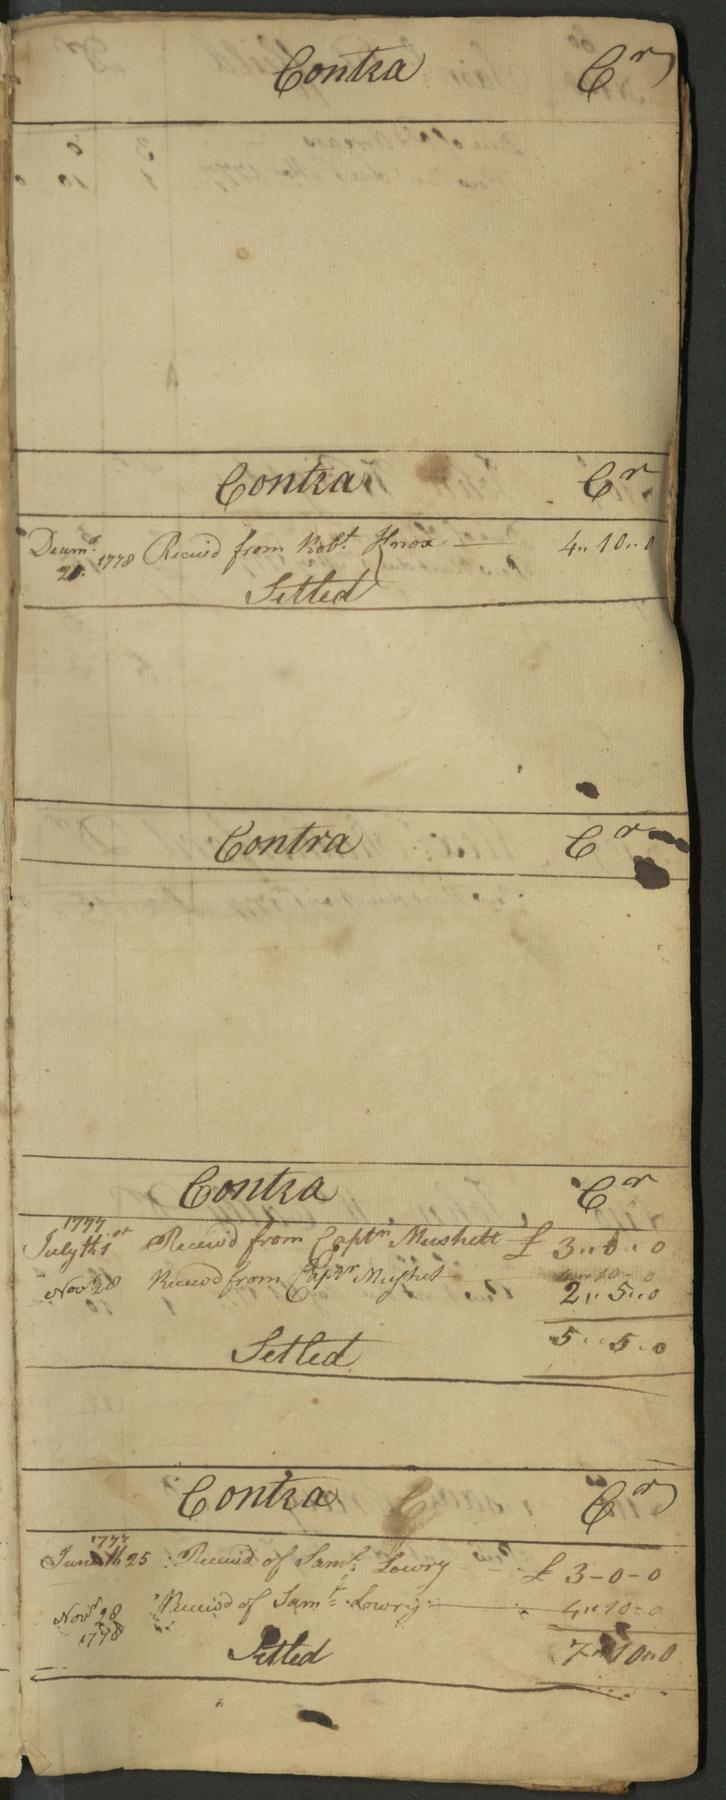 Contra Cr
Contra Cr
Decemr 1778 Receivd from Robt Knox 4,, 10,, 0
Setled
Contra Cr
Contra Cr
1777
July th 1st Receivd from Captn Mushett £ 3,, 0,, 0
Novr 28 Receivd from Captn Mushet 2,, 5,, 0
5,, 5,, 0
Setled
Contra Cr
1777
June th 25 Receivd of Samt Lowry £ 3-0-0
Novr 28 Receivd of Samt Lowry 4,, 10-0
1778
Setled 7,, 10,, 0